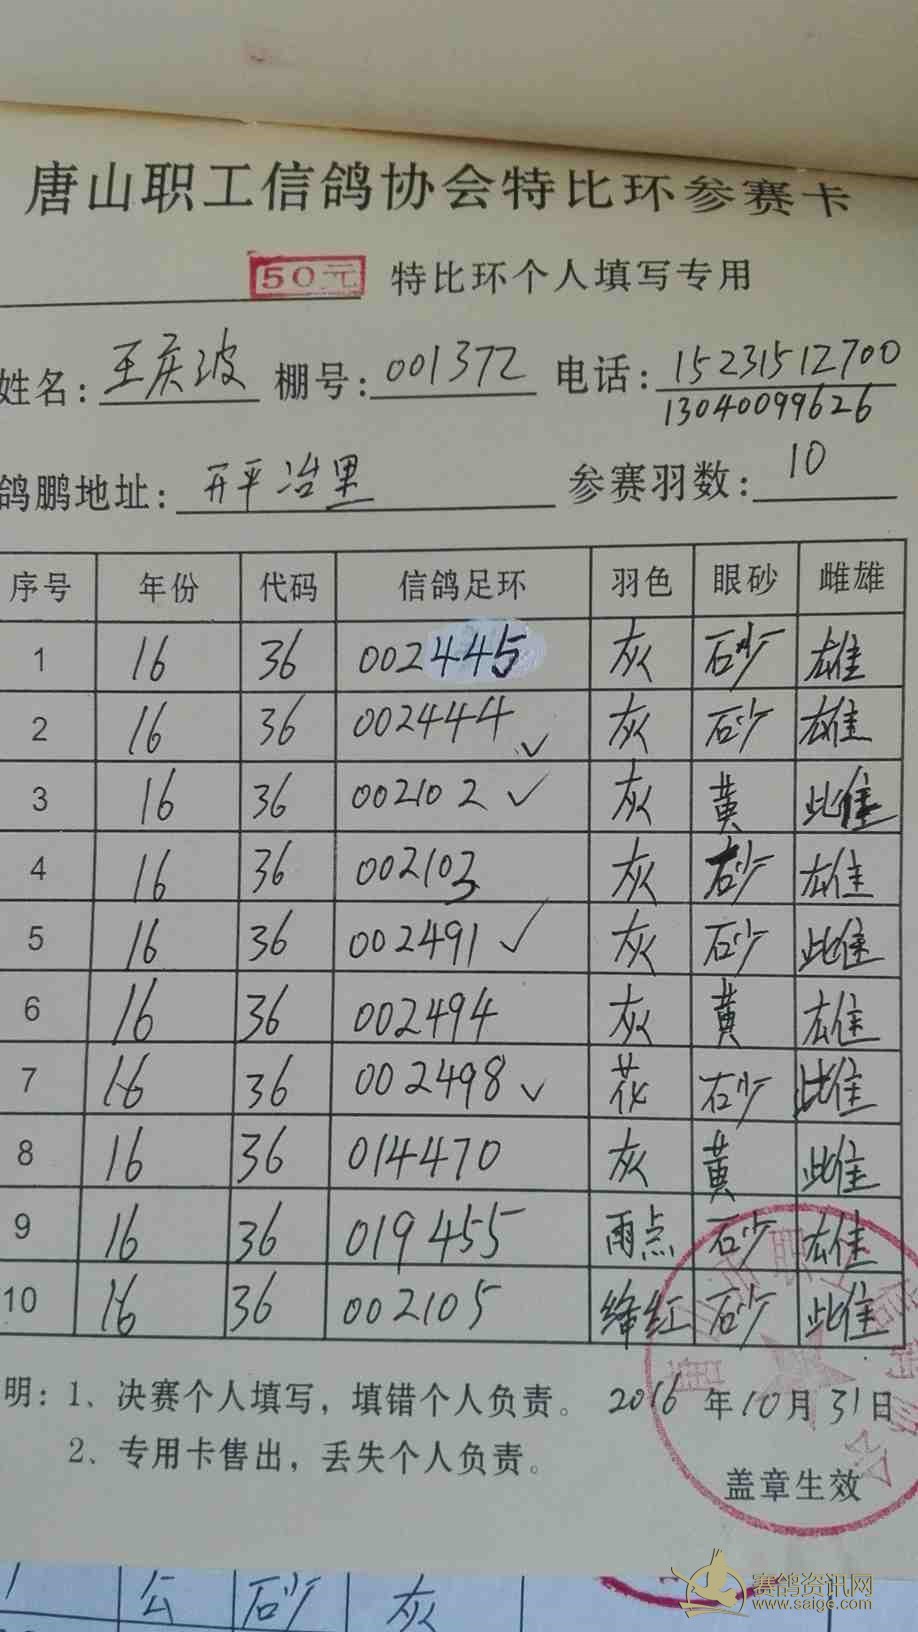 唐山职工信鸽协会特比环参赛卡
50元 特比环个人填写专用
姓名: 王庆波 棚号: 001372 电话: 15231512700
13040099626
鸽鹏地址: 开平冶里 参赛羽数: 10
序号 年份 代码 信鸽足环 羽色 眼砂 雌雄
1 16 36 002445 灰 砂 雄
2 16 36 002444 ✓ 灰 砂 雄
3 16 36 002102 ✓ 灰 黄 雌
4 16 36 002103 灰 砂 雄
5 16 36 002491 ✓ 灰 砂 雌
6 16 36 002494 灰 黄 雄
7 16 36 002498 ✓ 花 砂 雌
8 16 36 014470 灰 黄 雌
9 16 36 019455 雨点 砂 雄
10 16 36 002105 绛红 砂 雌
明: 1、决赛个人填写，填错个人负责。 2016年10月31日
2、专用卡售出，丢失个人负责。
盖章生效
公 砂 灰
赛鸽资讯网
www.saige.com